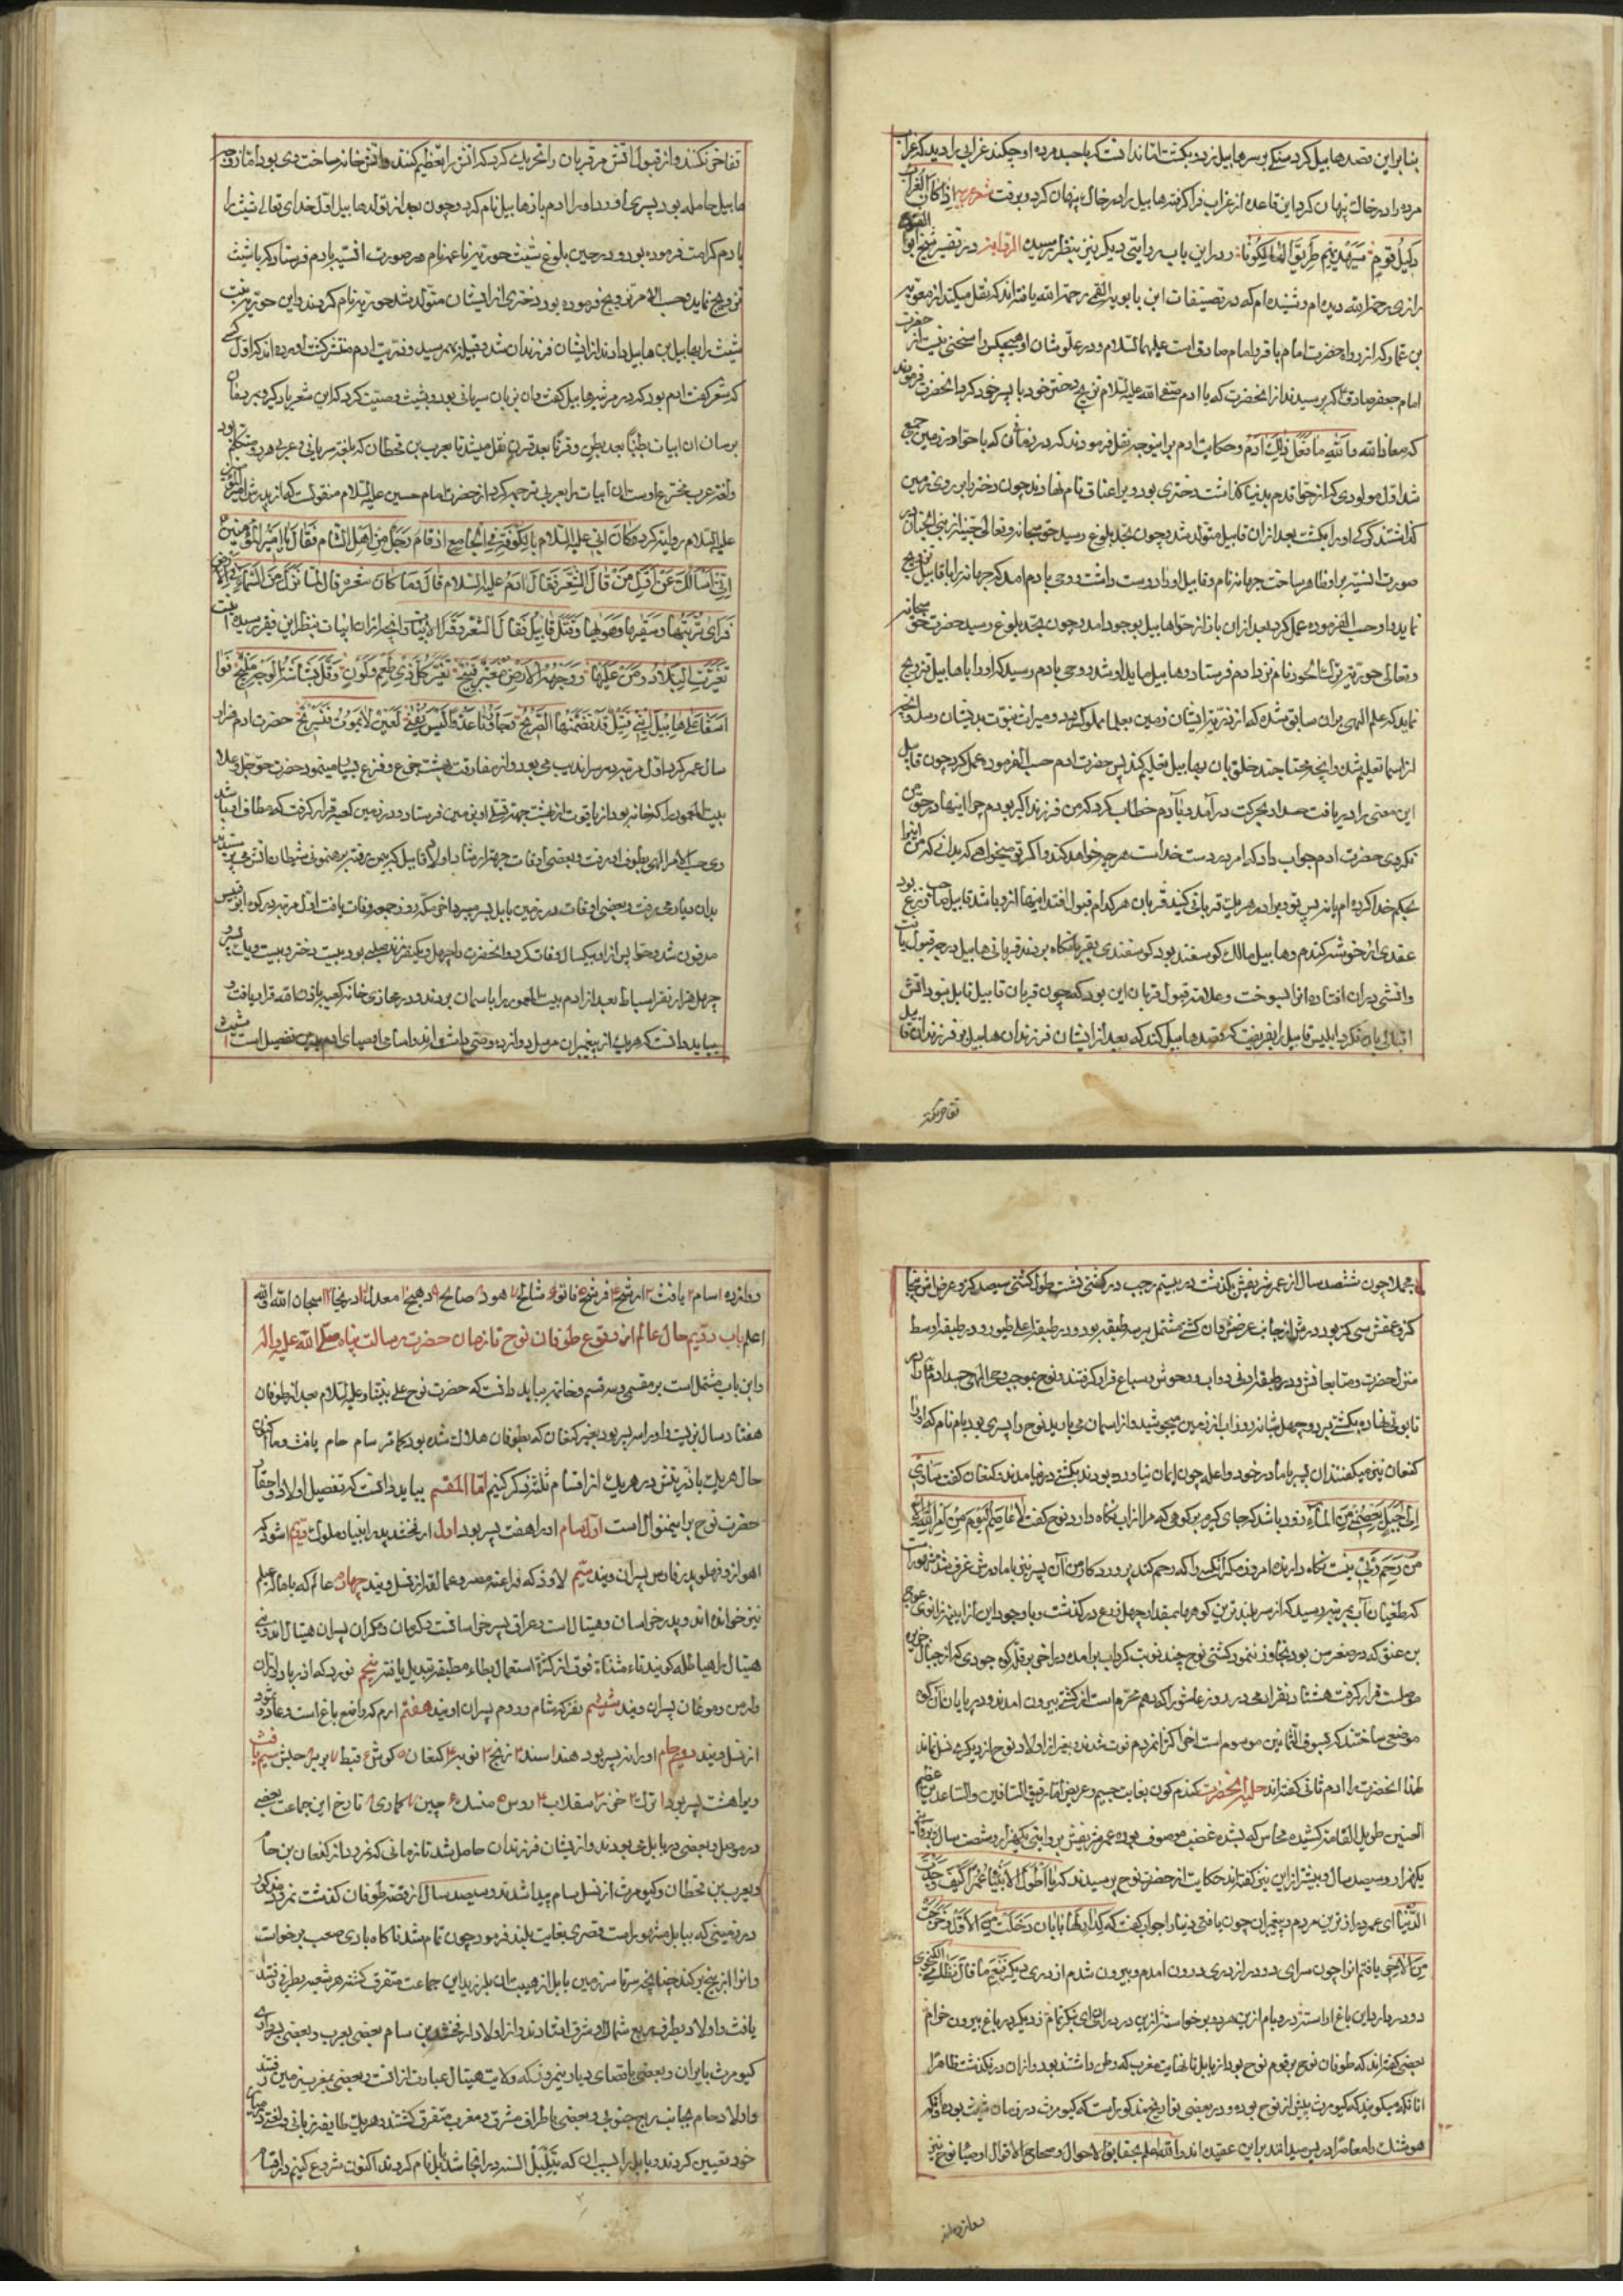 بنا براین قصد هابیل کرد سنکی بر سر هابیل زد و بکشت اما ندانست که با جسد مرده او چکند غرابی را دید که غراب
مرده را در خاک پنهان کرد این قاعده از غراب فرا کرفته هابیل را در خاک پنهان کرد و برفت شعر اذا کان الغراب
دلیل قوم سیهدیهم طریق الهالکونا و در این باب روایتی دیکر نیز بنظر رسیده الروایة در تفسیر شیخ ابو الفتوح
رازی رحمه الله دیده ام و شنیده ام که در تصنیفات ابن بابویه القمی رحمه الله یافته اند که نقل میکند از معویه
بن عمار که از رواه حضرت امام باقر و امام صادق است علیهما السلام و در علو شان او هیچکس را سخنی نیست از حضرت
امام جعفر صادق که پرسیدند از انحضرت که یا ادم صفی الله علیه السلام تزویج دختر خود با پسر خود کرد انحضرت فرمودند
که معاذ الله والله ما فعل ذلک ادم و حکایت ادم بر اینوجه نقل فرمودند که در زمانی که با حوا در زمین جمع
شد اول مولودی که از حوا قدم بدنیا کذاشت دختری بود ویرا عناق نام نهادند چون دختر بر روی زمین
کذاشتند کرکی او را بکشت بعد از ان قابیل متولد شد و چون بحد بلوغ رسید حق سبحانه و تعالی جنیه از بنی الجان در
صورت انسیه بر او ظاهر ساخت جهانه نام و قابیل او را دوست داشت و وحی بادم امد که جهانه را با قابیل تزویج
نماید و او حسب الفرموده عمل کرد بعد از ان باز از حوا هابیل بوجود امد و چون بحد بلوغ رسید حضرت حق سبحانه
و تعالی حوریه ترک الحور نام نزد ادم فرستاد و هابیل مایل او شد و وحی بادم رسید که او را با هابیل تزویج
نماید که علم الهی بران سابق شده که از ذریه ایشان زمین مملو کردد و میراث نبوت بدیشان رسد و انچه
از اسما تعلیم شد و انچه محتاج خلق بان هابیل تعلیم کند پس حضرت ادم حسب الفرموده عمل کرد چون قابیل
این معنی را دریافت حسد او بحرکت در آمد و بآدم خطاب کرد که من فرزند اکبر بودم چرا اینها در حق من
نکردی حضرت ادم جواب داد که امر بدست خداست هر چه خواهد کند و اکر تو میخواهی که بدانی که من اینرا
بحکم خدا کرده ام یا نه پس تو و برادر هر یک قربانی کنید قربان هر کدام قبول افتد اینها از او باشد قابیل صاحب زرع بود
عقدی از خوشه کندم و هابیل مالک کوسفند بود کوسفندی بقربانکاه بردند قربانی هابیل درجه قبول یافت
و اتشی در ان افتاده انرا بسوخت و علامت قبول قربان این بود که چون قربان قابیل قابل نبود اتش
اقبالی بان نکرد ابلیس قابیل را بفریفت که قصد هابیل کند که بعد از ایشان فرزندان هابیل بر فرزندان قابیل
تفاخر نکنند
تفاخر نکنند و از قبول اتش مر قربان را تحریک کرد که اتش را تعظیم کنند و اتش خانه ساخت دی بود اما زوجه
هابیل حامله بود پسری اورد او را ادم باز هابیل نام کرد و چون بعد از تولد هابیل اول خدای تعالی شیث را
بادم کرامت فرموده بود و در حین بلوغ شیث حوریه ناعمه نام در صورت انسیه بادم فرستاد که با شیث
تزویج نماید و حسب الامر تزویج فرموده بود دختری از ایشان متولد شد حوریه نام کردند و این حوریه بنت
شیث را بهابیل بن هابیل دادند از ایشان فرزندان شد و قبیله بهم رسید و ذریت ادم منتشر کشت اورده اند که اول کسی
که شعر کفت ادم بود که در مرثیه هابیل کفت و ان بزبان سریانی بود و بشیث وصیت کرد که این شعر یاد کیرد
بر سان ان ابیات بطنا بعد بطن و قرنا بعد قرن نقل میشد تا یعرب بن قحطان که بلغت سریانی و عربی هر دو متکلم بود
و لغت عرب مخترع اوست ان ابیات را بعربی ترجمه کرد از حضرت امام حسین علیه السلام منقولست که از پدرش امیر المؤمنین
علیه السلام روایت کرد وکان ابی علیه السلام بالکوفة فی الجامع اذ قام رجل من اهل الشام فقال یا امیر المؤمنین
انی اسالک عن اول من قال الشعر فقال ادم علیه السلام قال وما کان شعره قال لما نزل من السماء الی الارض
فرای تربتها وسعتها وهواها وقتل قابیل فقال الشعر وقرا الابیات و انچه از ان ابیات بنظر این فقیر رسیده بیت
تغیرت البلاد ومن علیها ووجه الارض مغبر قبیح تغیر کل ذی طعم ولون وقل بشاشة الوجه الملیح
اسفا علی هابیل ابنی قتیل قد تضمنها الضریح وجاورنا عدو لیس یفنی لعین لا یموت فنستریح حضرت ادم هزار
سال عمر کرد اول مرتبه در سراندیب می بود و از مفارقت بهشت جزع و فزع بسیار مینمود حضرت حق جل وعلا
بیت المعمور را که خانه بود از یاقوت از بهشت جهة تسلی او بزمین فرستاد و در زمین کعبه قرار کرفت که مطاف انبیا باشد
وی حسب الامر الهی بطوف او میرفت و بعضی اوقات جهة ارشاد اولاد قابیل که بیمن رفته برهنمونی شیطان اتش می پرستیدند
بدان دیار میرفت و بعضی اوقات در زمین بابل بسر میبرد اخر بمکه روز جمعه وفات یافت اول مرتبه در کوه ابو قبیس
مدفون شد و حوا پس از او بیکسال وفات کرد و انحضرت را چهل و یکنفر فرزند صلبی بود بیست دختر و بیست و یک پسر و
چهل هزار نفر اسباط بعد از ادم بیت المعمور را باسمان بردند و در محاذی خانه کعبه باذن الله قرار یافت و
بباید دانست که هر یک از پیغمبران مرسل دوازده وصی داشته اند و اسامی اوصیای ادم بدین تفصیل است شیث
مجملا چون ششصد سال از عمر شریفش بکذشت در بیستم رجب در کشتی نشست طول کشتی سیصد کز و عرض پنجاه
کز و عمقش سی کز بود و درش از جانب عرض و ان کشتی مشتمل بر سه طبقه بود و در طبقه اعلی طیور و در طبقه اوسط
منزل حضرت و متابعانش و در طبقه ادنی دواب و وحوش و سباع قرار کرفتند و نوح بموجب وحی الهی جسد ادم را در
تابوتی نهاده بکشتی برد و چهل شبانه روز اب از زمین میجوشید و از اسمان می بارید نوح را پسری بود یام نام که او را
کنعان نیز میکفتند ان پسر با مادر خود واعله چون ایمان نیاورده بودند بکشتی در نیامدند و کنعان کفت ساوی
الی جبل یعصمنی من الماء زود باشد که جای کیرم بر کوهی که مرا از اب نکاه دارد نوح کفت لا عاصم الیوم من امر الله الا
من رحم ربی نیست نکاه دارنده امروز مکر انکسی را که رحم کند پروردکار من آن پسر نیز با مادرش غرق شدند
که طغیان آب بمرتبه رسید که از سر بلند ترین کوهها بمقدار چهل ذرع در کذشت و با وجود این از اینه زانوی عوج
بن عنق که در صغر سن بود تجاوز ننمود کشتی نوح چند نوبت کرد اب برامده در اخر بر قله کوه جودی که از جبال جزیره
موصل است قرار کرفت هشتاد نفر ادمی در روز عاشورا که دهم محرم است از کشتی بیرون امدند و در پایان آن کوه
موضعی ساختند که بسوق الثمانین موسوم است اخر اکثر انمردم فوت شدند و بغیر از اولاد نوح از دیکری نسل نماند
لهذا انحضرت را ادم ثانی کفته اند حلیه انحضرت کندم کون بغایت جسیم و عریض اما رقیق الساقین و الساعدین عظیم
العینین طویل القامة کشیده محاسن که بشده غضب موصوف بوده عمر شریفش بروایتی یکهزار و شصت سال و بروایتی
یکهزار و سیصد سال و بیشتر از این نیز کفته اند حکایت از حضرت نوح پرسیدند که یا اطول الانبیا عمرا کیف وجدت
الدنیا ای عمر دراز ترین مردم و پیغمبران چون یافتی دنیا را جواب کفت که کدار لها بابان دخلت من الاول وخرجت
من الاخر یافتم انرا چون سرای دو در از دری درون امدم و بیرون شدم از دری دیکر نعم ما قال نظامی الکنجوی
دو در دارد این باغ اراسته در و بام ازین هر دو برخواسته ازین در درای بنکر تمام ز دیکر در باغ بیرون خرام
بعضی کفته اند که طوفان نوح بر قوم نوح بود از بابل تا نهایت مغرب که وطن داشتند بود و از ان در نکذشت ظاهرا
انانکه میکویند که کیومرث پیش از نوح بوده و در بعضی تواریخ مذکور است که کیومرث در زمان شیث بوده و انکه
هوشنک را معاصر ادریس میدانند بر این عقیده اند والله اعلم بحقایق الاحوال و صحایح الاقوال اوصیا نوح نیز
دوازده اند
دوازده ا سام ۲ یافث ۳ ارفخشد ۴ فرشخ ۵ فاتو ۶ شالخ ۷ هود ۸ صالح ۹ دهیخ ۱۰ معدل ۱۱ دریخا ۱۲ سبحان الله والله
اعلم باب دویم حال عالم از وقوع طوفان نوح تا زمان حضرت رسالت پناه صلی الله علیه واله
و این باب مشتمل است بر مقسمی و سه قسم و خاتمه بباید دانست که حضرت نوح علی نبینا وعلیه السلام بعد از طوفان
هفتاد سال بزیست و او را سه پسر بود بغیر کنعان که بطوفان هلاک شده بود سام حام یافث و ما اکنون
حال هر یک با ذریتش در هر یک از اقسام ثلثه ذکر کنیم اما المقسم بباید دانست که تفصیل اولاد و احفاد
حضرت نوح بر اینمنوال است اول سام او را هفت پسر بود اول ارفخشد پدر انبیا و ملوک دویم اشود که
اهواز و فهلو پدر فارس پسران ویند سیم لاوذ که فراعنه مصر و عمالقه از نسل ویند چهارم عالم که با هاء عیلم
نیز خوانده اند و پدر خراسان و هیتال است و عراق پسر خراسانست و کرمان و مکران پسران هیتال اند و بنی
هیتال را هیاطله کویند تاء مثناة فوق از کثرة استعمال بطاء مطبقه تبدیل یافته پنجم نورد که اذربایجان اران
و ارمن و موغان پسران ویند ششم نفر که شام و روم پسران اویند هفتم ارم که واضع باغ است و عاد و ثمود
از نسل ویند دویم حام او را نه پسر بود هند ا سند ۲ زنج ۳ نوبه ۴ کنعان ۵ کوش ۶ قبط ۷ بربر ۸ حبش سیم یافث
ویرا هشت پسر بود ا ترک ۲ خزر ۳ سقلاب ۴ روس ۵ منسک ۶ چین ۷ کماری ۸ تارخ این جماعت بعضی
در موصل و بعضی در بابل می بودند و از ایشان فرزندان حاصل شد تا زمانی که نمرود از کنعان بن حام
و یعرب بن قحطان و کیومرث از نسل سام پیدا شدند و سیصد سال از قصه طوفان کذشت نمرود مذکور
در زمینی که ببابل مشهور است قصری بغایت بلند فرمود چون تمام شد ناکاه بادی صعب برخواست
و انرا از بیخ بر کند چنانچه سرتا سر زمین بابل از هیبت ان بلرزید این جماعت متفرق کشته هر شعبه بطرفی رفتند
یافث و اولاد بطرف ربع شمال و مشرق افتادند و از اولاد ارفخشد بن سام بعضی بعرب و بعضی باولاد
کیومرث بایران و بعضی باقصای دیار نیمروز که ولایت هیتال عبارت از انست و بعضی بمغرب زمین رفتند
و اولاد حام بجانب ربع جنوبی و بعضی باطراف مشرق و مغرب متفرق کشتند و هر یک طایفه زبانی و لغتی در میان
خود تعیین کردند و بابل را بسبب ان که تبلبل السنه در انجا شد بابل نام کردند اکنون شروع کنیم در اقسام